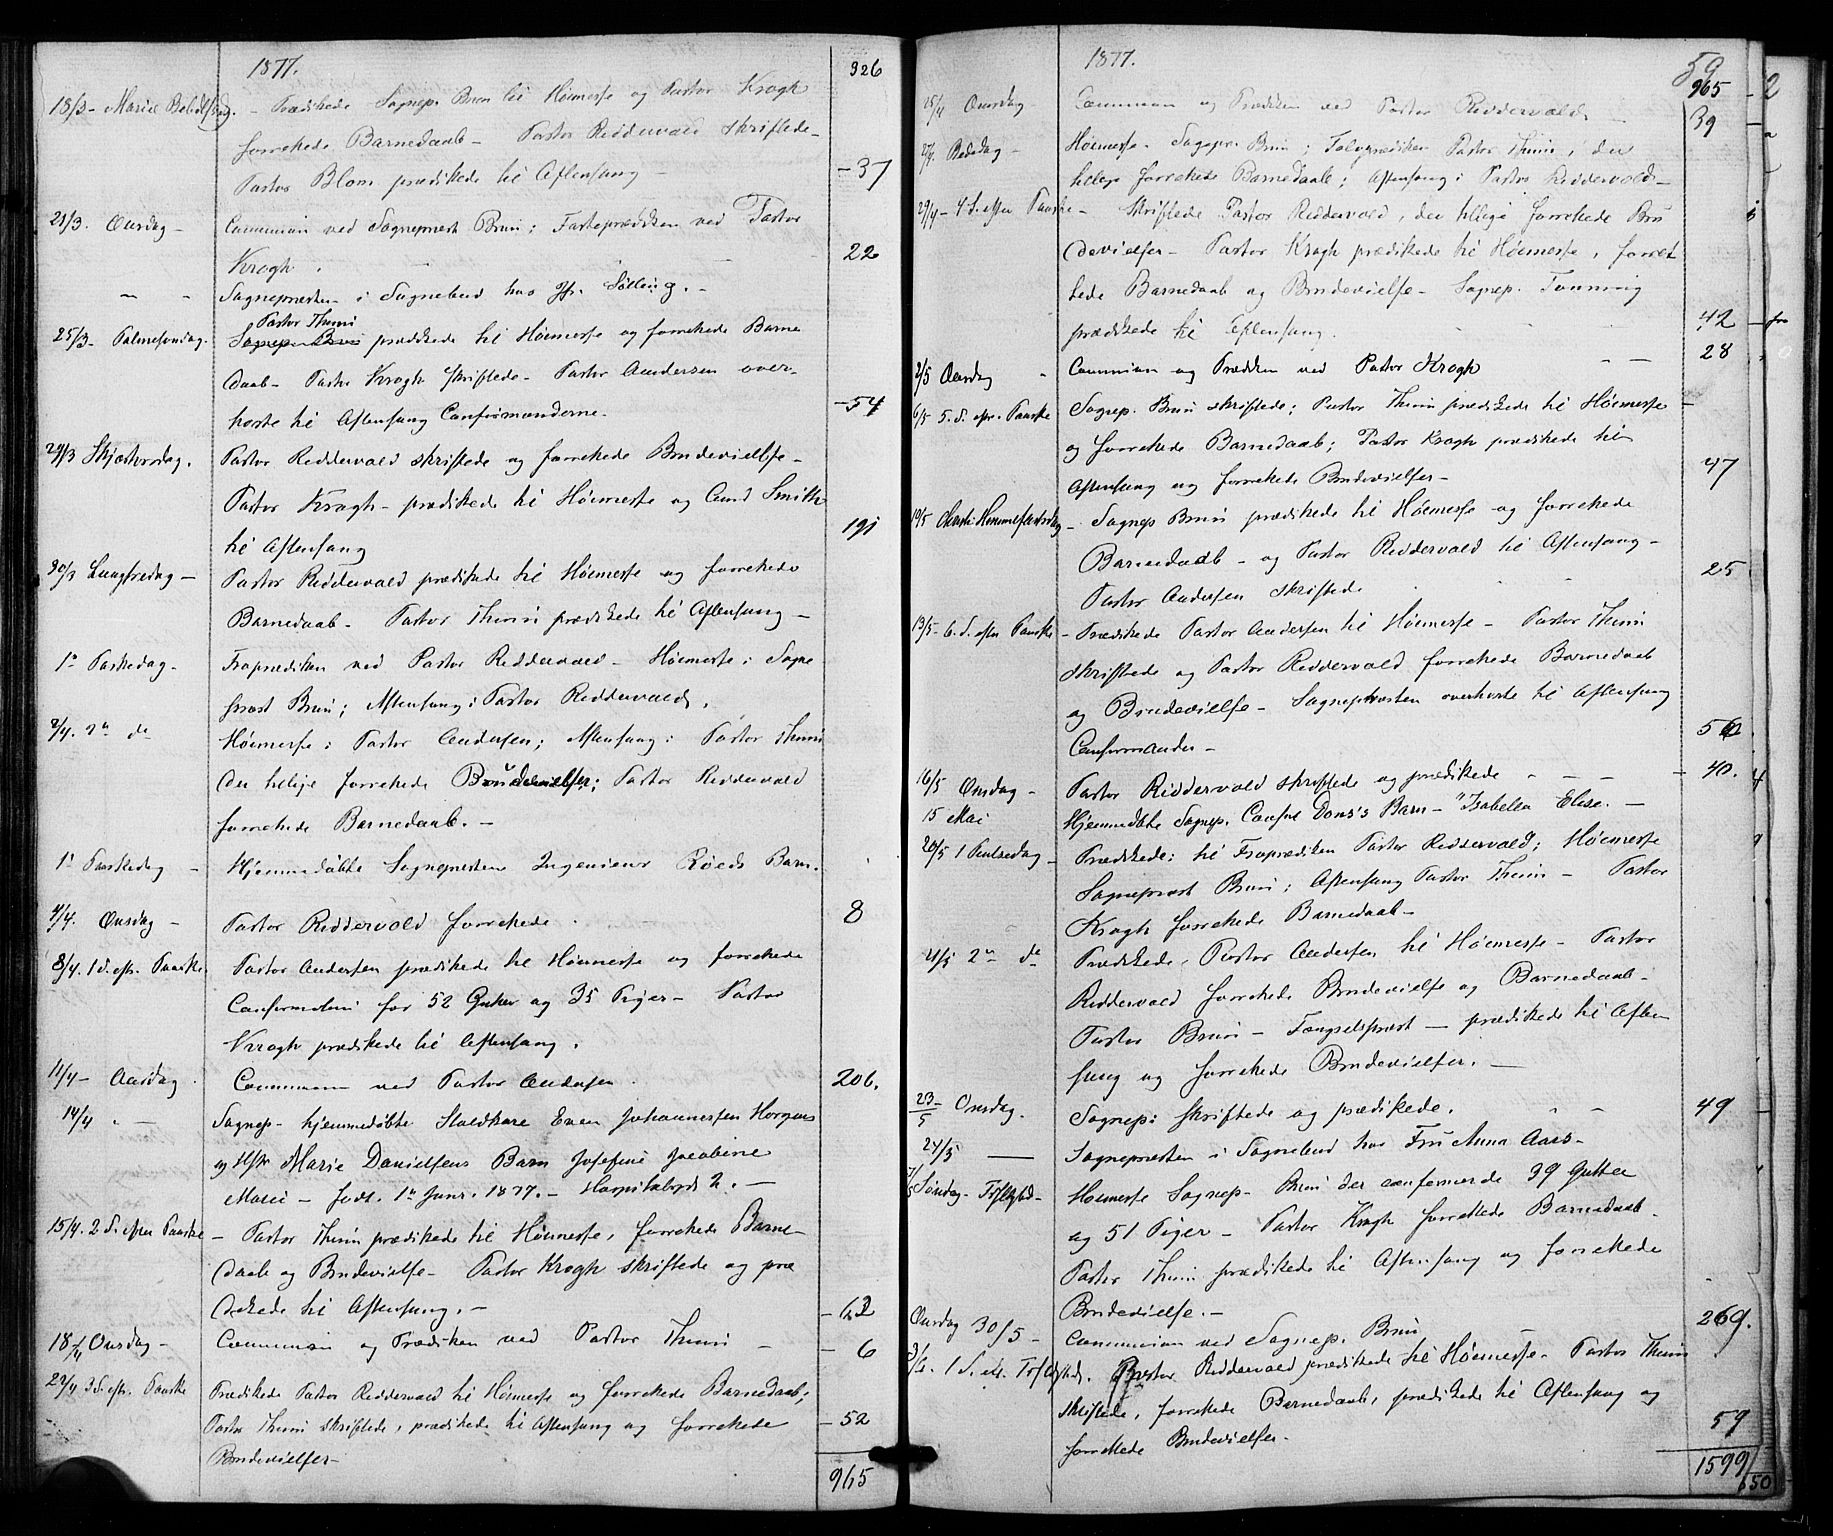 1877.
326
18/3 - Mariæ Bebudelsesdag. - Prædikede Sognep. Bruun til Høimesse og Pastor Krogh
forrettede Barnedaab - Pastor Riddervold skriftede -
Pastor Blom prædikede til Aftensang - - 37
21/3. Onsdag - Communion ved Sogneprest Bruun; Fasteprædiken ved Pastor
Krogh. 22
" " Sognepresten i Sognebud hos Jfr. Sølling. -
Pastor Thuun
25/3 - Palmesøndag. Sognep. Bruun prædikede til Høimesse og forrettede Barne
daab - Pastor Krogh skriftede - Pastor Andersen over-
hørte til Aftensang Confirmanderne. - 54
29/3 Skjærtorsdag. Pastor Riddervold skriftede og forrettede Brudevielse -
Pastor Krogh - prædikede til Høimesse og Cand Smith
til Aftensang 191
30/3 Langfredag - Pastor Riddervold prædikede til Høimesse og forrettede
Barnedaab - Pastor Thuun prædikede til Aftensang -
1ste Paaskedag - Froprædiken ved Pastor Riddervold - Høimesse: Sogne
prest Bruun; Aftensang: Pastor Riddervold.
2/4. 2den de Høimesse: Pastor Andersen; Aftensang: Pastor Thuun
der tillige forrettede Brudevielser; Pastor Riddervold
forrettede Barnedaab. -
1ste Paaskedag - Hjemmedøbte Sognepresten Ingenieur Røeds Barn.
4/4. Onsdag - Pastor Riddervold forrettede. 8
8/4. 1 S. eft. Paaske Pastor Andersen prædikede til Høimesse og forrettede
Confirmation for 52 Gutter og 35 Piger - Pastor
Krogh prædikede til Aftensang.
11/4 - Onsdag. Communion ved Pastor Andersen. 206.
14/4 " - Sognep. hjemmedøbte Staldkarl Even Johannesen Horgens
og Hstr Marie Danielsens Barn Josefine Jacobine
Marie - født 1ste Janr. 1877. - Hospitalsgd 2. -
15/4. 2 S. efter Paaske - Pastor Thuun prædikede til Høimesse, forrettede Barne-
daab og Brudevielse - Pastor Krogh skriftede og præ
dikede til Aftensang. - - 62
18/4 Onsdag - Communion og Prædiken ved Pastor Thuun - - 6
22/4 3 S. eft. Paaske Prædikede Pastor Riddervold til Høimesse og forrettede Barnedaab;
Pastor Thuun skriftede, prædikede til Aftensang og forrettede - 52
Brudevielser -
965
1877.
59
965
25/4 Onsdag Communion og Prædiken ved Pastor Riddervold. 39
27/4. Bededag - Høimesse - Sognepr. Bruun; Tolvprædiken Pastor Thuun, der
tillige forrettede Barnedaab; Aftensang: Pastor Riddervold -
29/4 - 4 S. efter Paaske - Skriftede Pastor Riddervold, der tillige forrettede Bru
devielser - Pastor Krogh prædikede til Høimesse, forret
tede Barnedaab og Brudevielse - Sognep. Tønning
prædikede til Aftensang. 42
2/5 Onsdag - Communion og Prædiken ved Pastor Krogh - - 28
6/5 5. S. eft. Paaske Sognep. Bruun skriftede; Pastor Thuun prædikede til Høimesse -
og forrettede Barnedaab; Pastor Krogh prædikede til
Aftensang og forrettede Brudevielser - 47
10/5 Christi Himmelfartsdag - Sognep Bruun prædikede til Høimesse og forrettede
Barnedaab - og Pastor Riddervold til Aftensang -
Pastor Andersen skriftede 25
13/5 - 6. S. efter Paaske - Prædikede Pastor Andersen til Høimesse - Pastor Thuun
skriftede og Pastor Riddervold forrettede Barnedaab
og Brudevielse - Sognepresten overhørte til Aftensang
Confirmander -
16/5 Onsdag - Pastor Riddervold skriftede og prædikede - - - 40.
15 Mai Hjemmedøbte Sognep. Consul Dons's Barn - "Isabella Elise. -
20/5 1 Pintsedag - Prædikede: til Froprædiken Pastor Riddervold; Høimesse
Sogneprest Bruun; Aftensang Pastor Thuun - Pastor
Krogh forrettede Barnedaab -
21/5 2den de Prædikede, Pastor Andersen til Høimesse - Pastor
Riddervold forrettede Brudevielse og Barnedaab -
Pastor Bruun - Fængselsprest - prædikede til Aften
sang og forrettede Brudevielser. -
23/5 Onsdag. Sognep: skriftede og prædikede. 49
24/5 - Sognepresten i Sognebud hos Fru Anna Aars -
Søndag - Trefoldighed - Høimesse Sognep - Bruun der confirmerede 39 Gutter
og 51 Piger - Pastor Krogh forrettede Barnedaab -
Pastor Thuun prædikede til Aftensang og forrettede
Brudevielse. - 269.
Onsdag 30/5 - Communion ved Sognep. Bruun
3/6. 1 S. eft. Trefoldighed. Pastor Riddervold prædikede til Høimesse - Pastor Thuun
skriftede, forrettede Barnedaab, prædikede til Aftensang og
forrettede Brudevielser - 59
1599